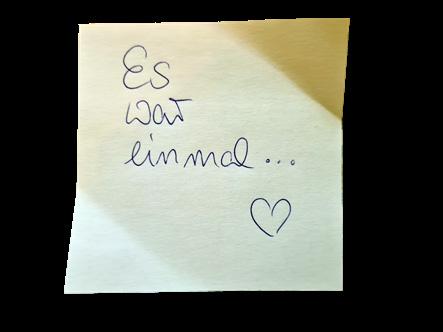 Es
war
einmal...